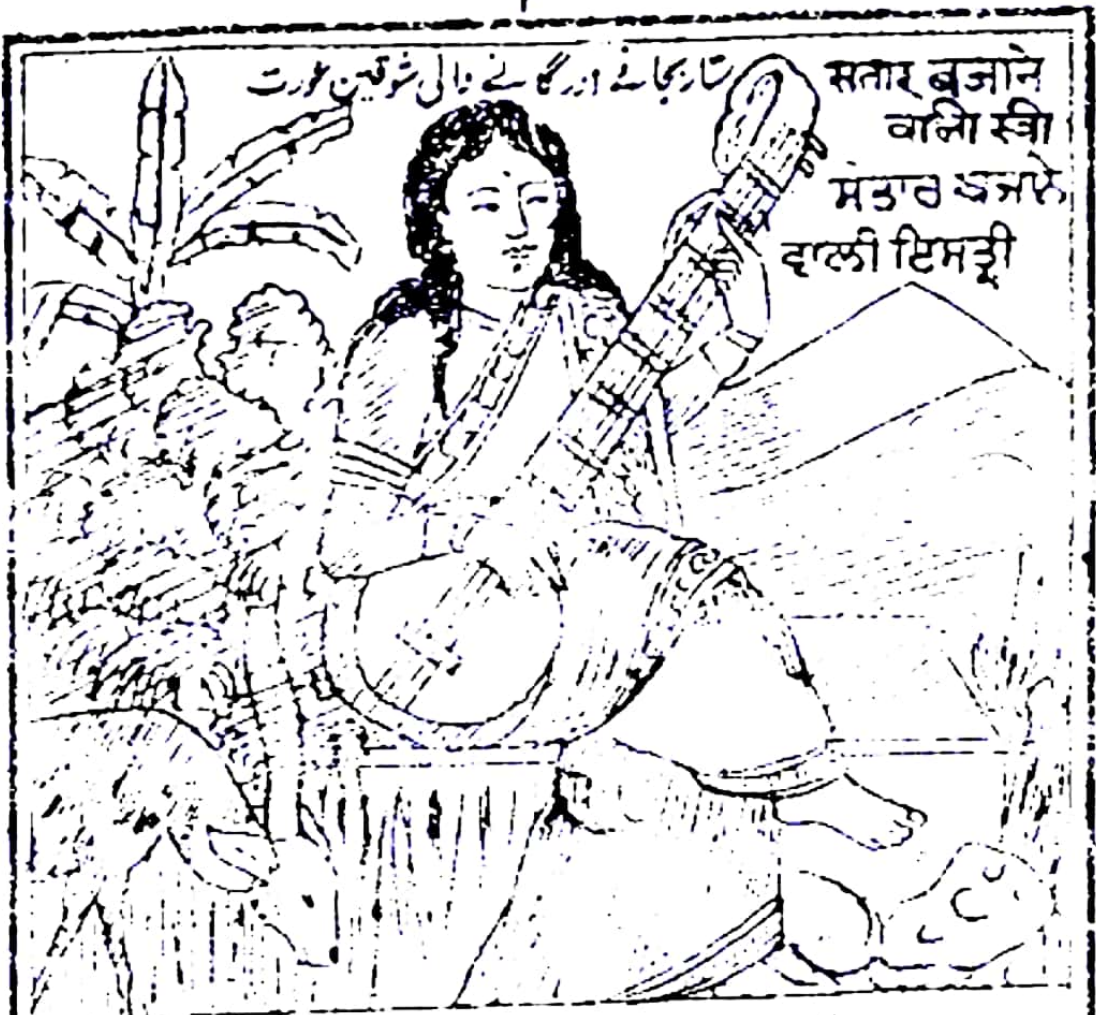 ستار بجانے اور گانے والی شوقین عورت
सतार बजाने
वाली स्त्री
ਸਤਾਰ ਬਜਾਨੇ
ਵਾਲੀ ਇਸਤ੍ਰੀ